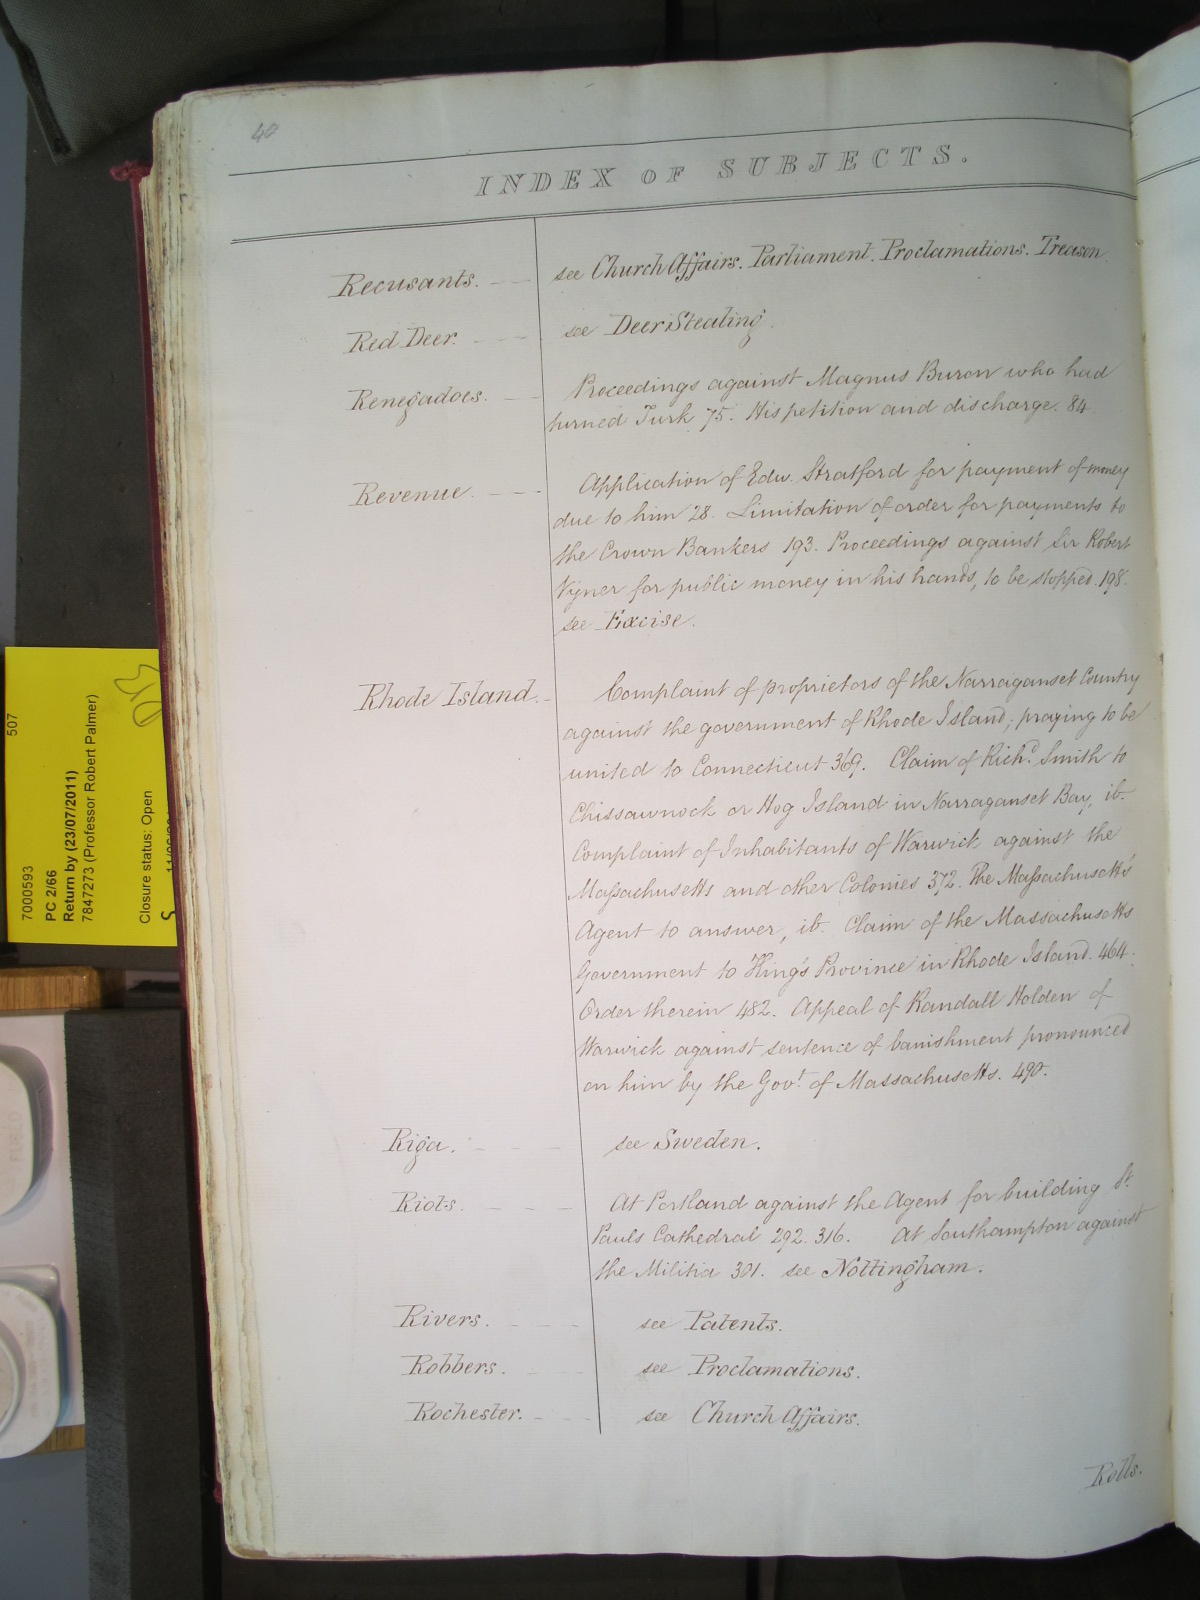 40
INDEX OF SUBJECTS.
Recusants. see Church Affairs. Parliament. Proclamations. Treason.
Red Deer. see Deer Stealing.
Renegadoes. Proceedings against Magnus Buron who had
turned Turk 75. His petition and discharge. 84
Revenue. Application of Edw. Stratford for payment of money
due to him 28. Limitation of order for payments to
the Crown Bankers 193. Proceedings against Sir Robert
Vyner for public money in his hands, to be stopped. 198.
see Excise.
Rhode Island. Complaint of proprietors of the Narraganset Country
against the government of Rhode Island; praying to be
united to Connecticut 369. Claim of Richd. Smith to
Chissawnock or Hog Island in Narraganset Bay, ib.
Complaint of Inhabitants of Warwick against the
Massachusetts and other Colonies 372. The Massachusetts'
Agent to answer, ib. Claim of the Massachusetts
Government to King's Province in Rhode Island. 464.
Order therein 482. Appeal of Randall Holden of
Warwick against sentence of banishment pronounced
on him by the Govt. of Massachusetts. 490.
Riga. see Sweden.
Riots. At Portland against the Agent for building St.
Pauls Cathedral 292. 316. At Southampton against
the Militia 301. see Nottingham.
Rivers. see Patents.
Robbers. see Proclamations.
Rochester. see Church Affairs.
Rolls.
507
7000593
PC 2/66
Return by (23/07/2011)
7847273 (Professor Robert Palmer)
Closure status: Open